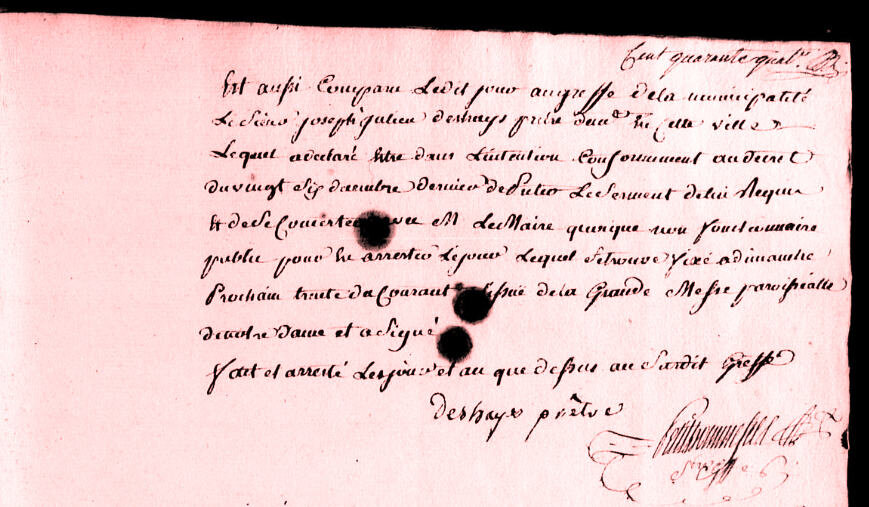 Cent quarante quat.
Est aussi Comparu Ledit jour au greffe de la municipalité
Le Sieur joseph julien deshays prêtre dem.t En Cette ville
Lequel a declaré Etre dans L'intention Conformement au decret
du vingt Six decembre dernier de Preter Le Serment de lui Requis
Et de Se Concerter avec M. Le Maire quoique non fonctionnaire
public pour En arrester Le jour Lequel Se trouve fixé a dimanche
Prochain trente du Courant issue de la Grande Messe paroissialle
de notre dame et a Signé
fait et arresté Les jour et an que dessus au Surdit greffe
deshays prêtre